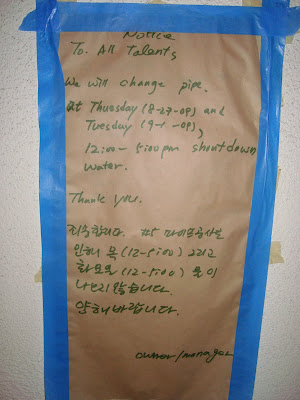 Notice
To. All Talents
We will change pipe.
At Thuesday (8-27-09) and
Tuesday (9-1-09),
12:00- 5:00pm shoutdown
water.
Thank you.
죄송합니다. 파이프공사로
인해 목(12-5:00) 그리고
화요일(12-5:00) 물이
나오지 않습니다.
양해바랍니다.
owner/manager